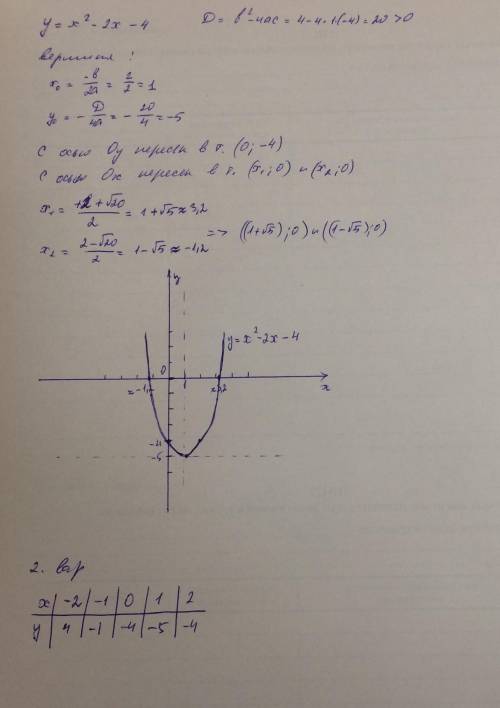 y = x² - 2x - 4 D = b² - 4ac = 4 - 4·1·(-4) = 20 > 0
вершина:
x₀ = -b/2a = 2/2 = 1
y₀ = - D/4a = - 20/4 = -5
С осью Oy пересеч в т. (0; -4)
С осью Ox пересеч в т. (x₁; 0) и (x₂; 0)
x₁ = +2 + √20 / 2 = 1 + √5 ≈ 3,2
=> ((1+√5); 0) и ((1-√5); 0)
x₂ = 2 - √20 / 2 = 1 - √5 ≈ -1,2
y
y = x² - 2x - 4
0
1 x
-4
-5
2. вар
x | -2 | -1 | 0 | 1 | 2
y | 4 | -1 | -4 | -5 | -4